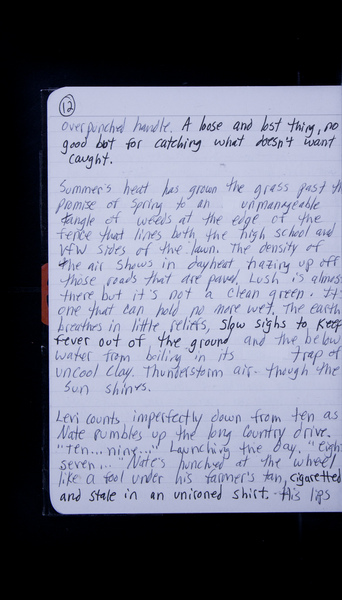 12
overpunched handle. A loose and lost thing, no
good but for catching what doesn't want
caught.
Summer's heat has grown the grass past th
promise of spring to an unmanageable
tangle of weeds at the edge of the
fence that lines both the high school and
VFW sides of the lawn. The density of
the air shows in dayheat, hazing up off
those roads that are paved. Lush is almos
there but it's not a clean green. It's
one that can hold no more wet. The earth
breathes in little reliefs, slow sighs to keep
fever out of the ground and the below
water from boiling in its trap of
uncool clay. Thunderstorm air though the
sun shines.
Levi counts imperfectly down from ten as
Nate rumbles up the long country drive.
"Ten... nine..." Launching the day. "eigh
seven..." Nate's hunched at the wheel
like a tool under his farmer's tan, cigaretted
and stale in an unironed shirt. His lips